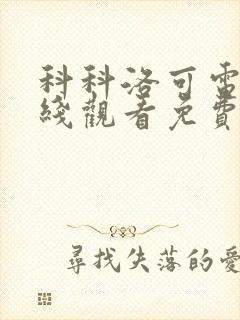 科科洛可電
綫觀看免費
尋找失落的愛